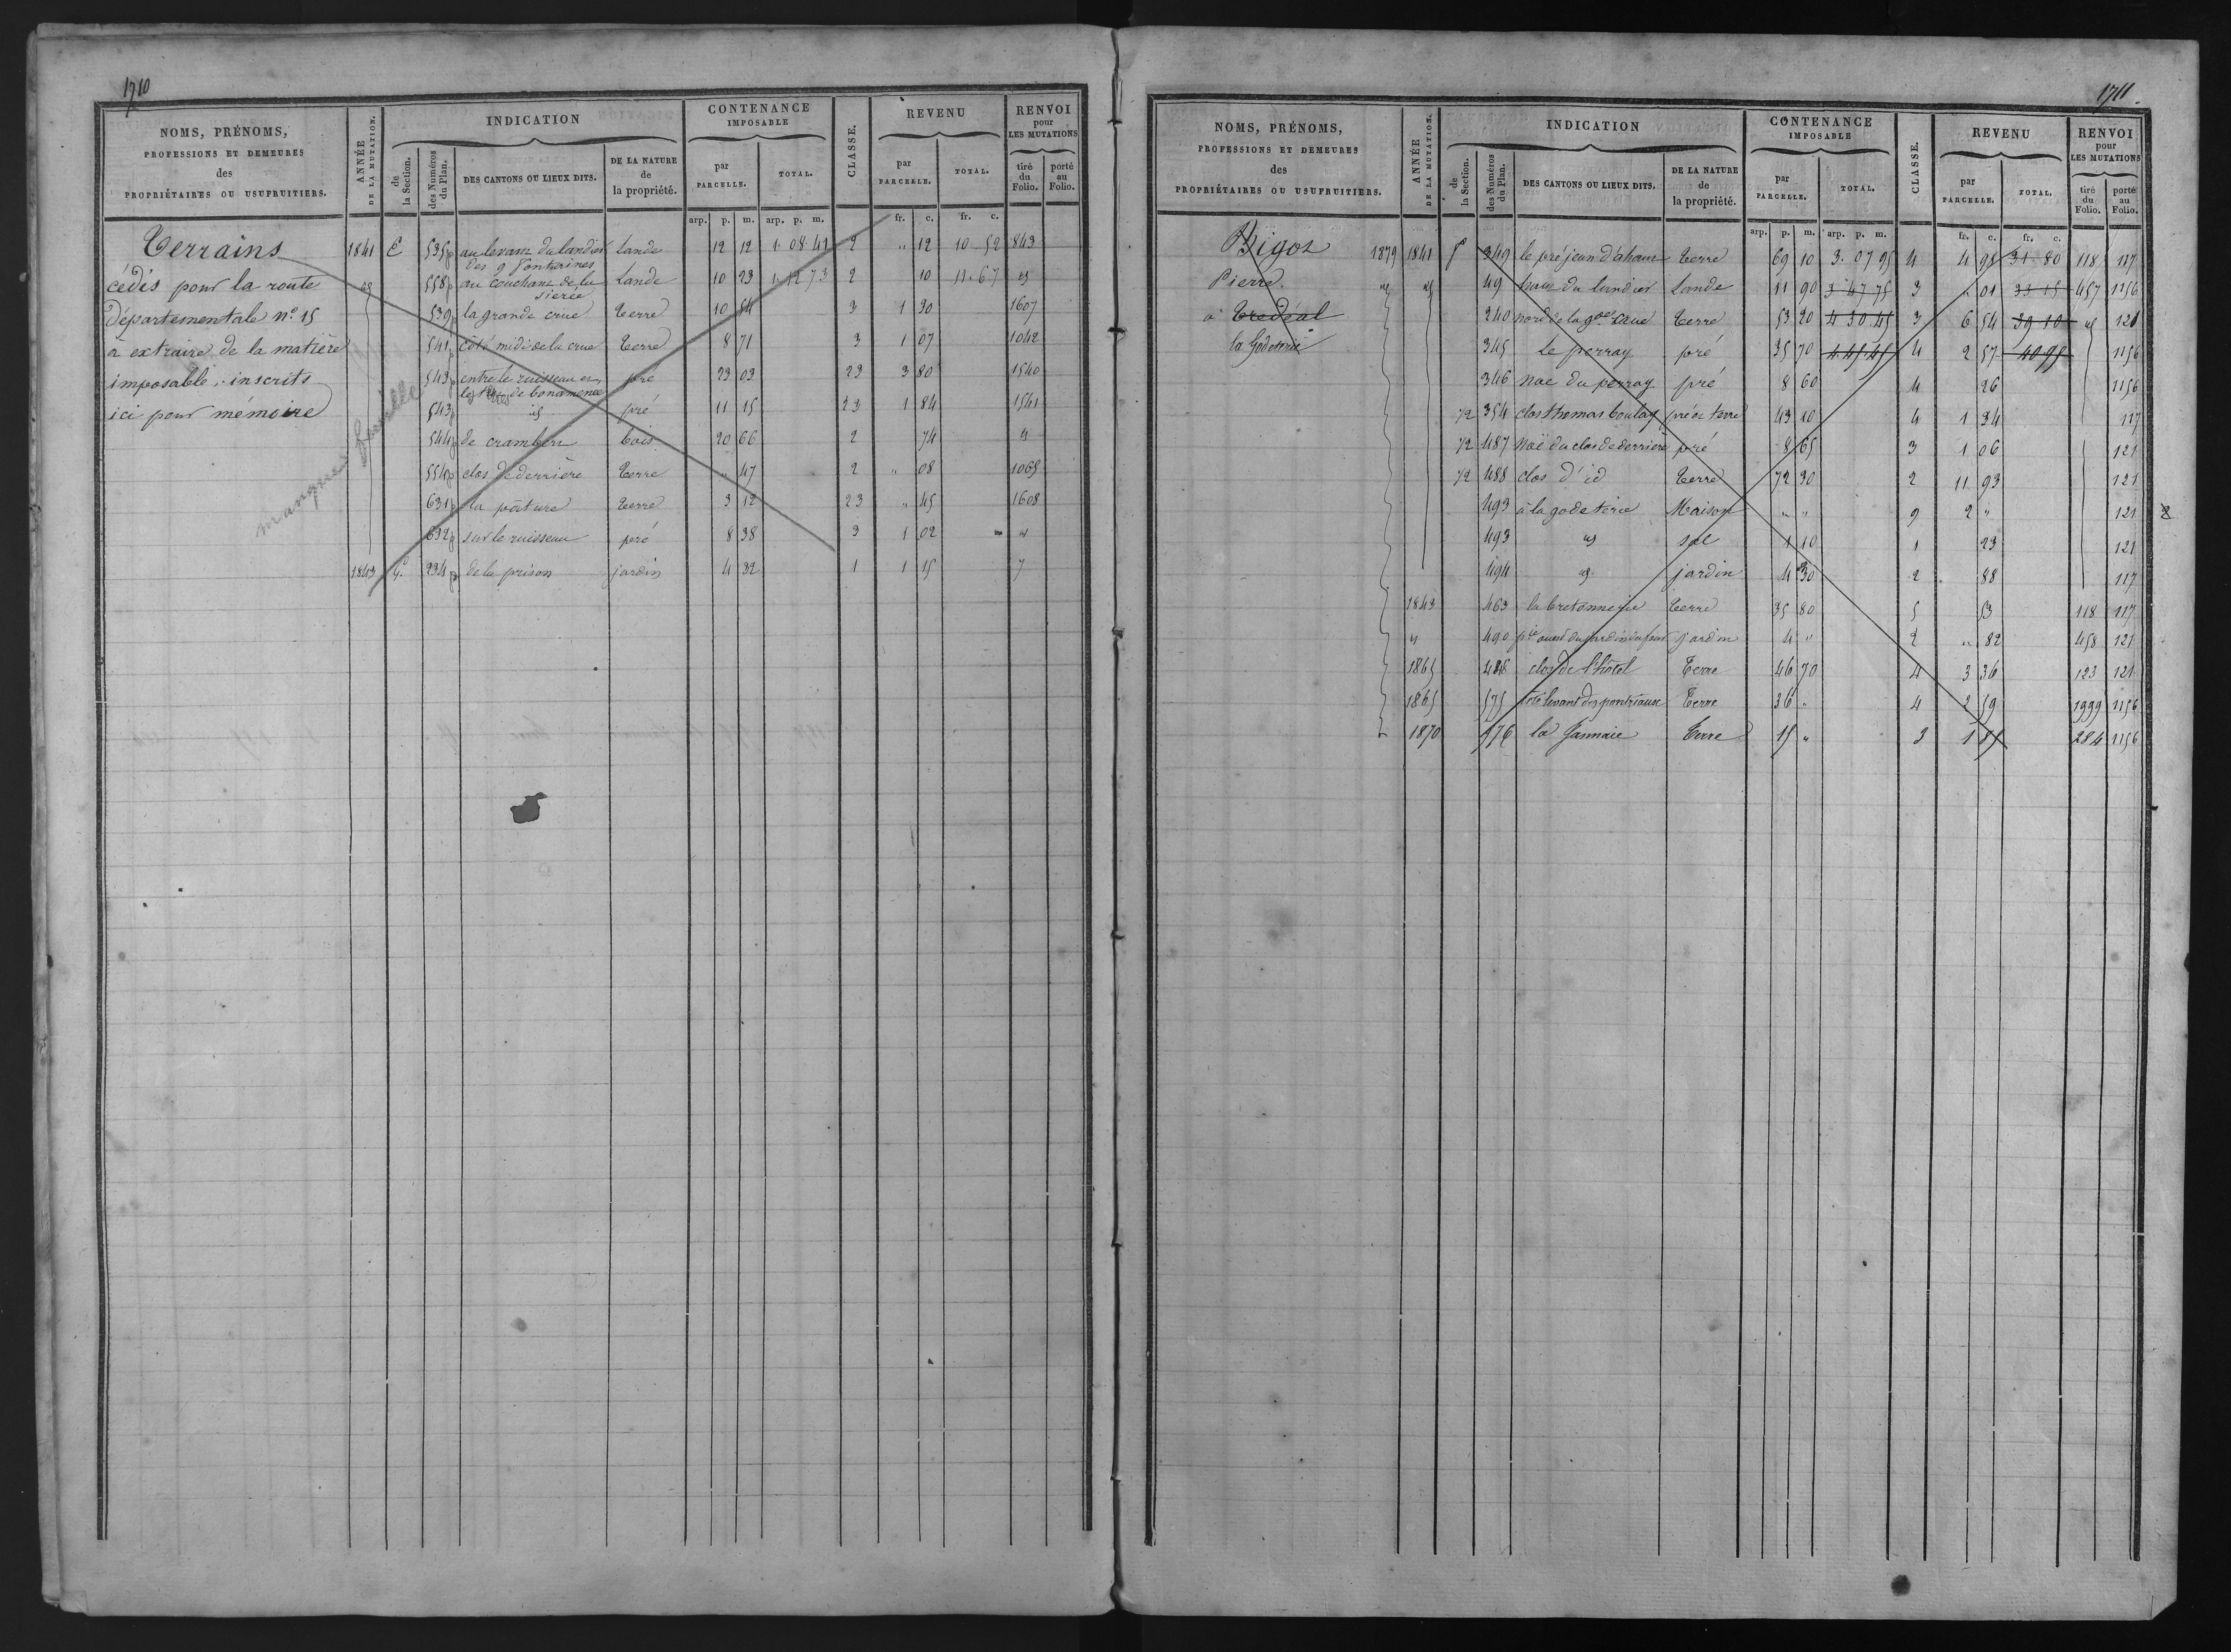 1710
NOMS, PRÉNOMS,
PROFESSIONS ET DEMEURES
des
PROPRIÉTAIRES OU USUFRUITIERS.
ANNÉE
DE LA MUTATION.
INDICATION
de
la Section.
des Numéros
du Plan.
DES CANTONS OU LIEUX DITS.
DE LA NATURE
de
la propriété.
CONTENANCE
IMPOSABLE
par
PARCELLE.
TOTAL.
CLASSE.
REVENU
par
PARCELLE.
TOTAL.
RENVOI
pour
LES MUTATIONS
tiré
du
Folio.
porté
au
Folio.
arp. p. m. arp. p. m. fr. c. fr. c.
Terrains
cédés pour la route
départementale n.o 15
à extraire de la matière
imposable, inscrits
ici pour mémoire
1841 E 535p au levant du landier des 9 fontaines lande 12 12 1. 08. 41 2 " 12 10 52 843
id 558p au couchant de la lande 10 23 1. 12 73 2 10 11. 67 id
539p la grande crue terre 10 54 3 1 30 1607
541p côté midi de la crue terre 8 71 3 1 07 1042
543p entre le ruisseau et pré 23 03 23 3 80 1540
543p id pré 11 15 23 1 84 1541
544p de crambert bois 20 66 2 74 id
554p clos de derrière terre " 47 2 " 08 1065
631p la pâture terre 3 12 23 " 45 1608
632p sur le ruisseau pré 8 38 3 1 02 id
1843 G. 234p de la prison jardin 4 32 1 1 15 7
manquent feuille
1711.
NOMS, PRÉNOMS,
PROFESSIONS ET DEMEURES
des
PROPRIÉTAIRES OU USUFRUITIERS.
ANNÉE
DE LA MUTATION.
INDICATION
de
la Section.
des Numéros
du Plan.
DES CANTONS OU LIEUX DITS.
DE LA NATURE
de
la propriété.
CONTENANCE
IMPOSABLE
par
PARCELLE.
TOTAL.
CLASSE.
REVENU
par
PARCELLE.
TOTAL.
RENVOI
pour
LES MUTATIONS
tiré
du
Folio.
porté
au
Folio.
arp. p. m. arp. p. m. fr. c. fr. c.
Bigot
Pierre.
à Tredéal
la Godeterie
1879 1841 349 le pré jean d'ahaut terre 69 10 3. 07 95 4 4 98 31. 80 118 117
id id 49 haut du landier lande 11 90 3 47 75 3 " 01 33 15 457 1156
240 nord de la g.de caue terre 53 20 4 30 45 3 6 54 39 10 id 121
345 le perray pré 35 70 4. 45. 45 4 2 57 40 95 1156
346 noe du perray pré 8 60 4 26 1156
1/2 354 clos thomas boulay pré et terre 43 10 4 1 34 117
1/2 487 Noë du clos de derrière pré 8 65 3 1 06 121
1/2 488 clos d' id terre 72 30 2 11 93 121
493 à la godeterie Maison " " 9 2 " 121
493 id sol 1 10 1 23 121
494 id jardin 4 30 2 88 117
1843 463 la bretonnerie terre 35 80 5 53 118 117
id 490 p.ie ouest du jardin du four jardin 4 " 2 " 82 458 121
1865 486 clos de l'hôtel Terre 46 70 4 3 36 123 121
1865 575 côté levant des pontréaux Terre 36 " 4 2 59 1999 1156
1870 576 la Jannaie Terre 15 " 3 1 85 284 1156